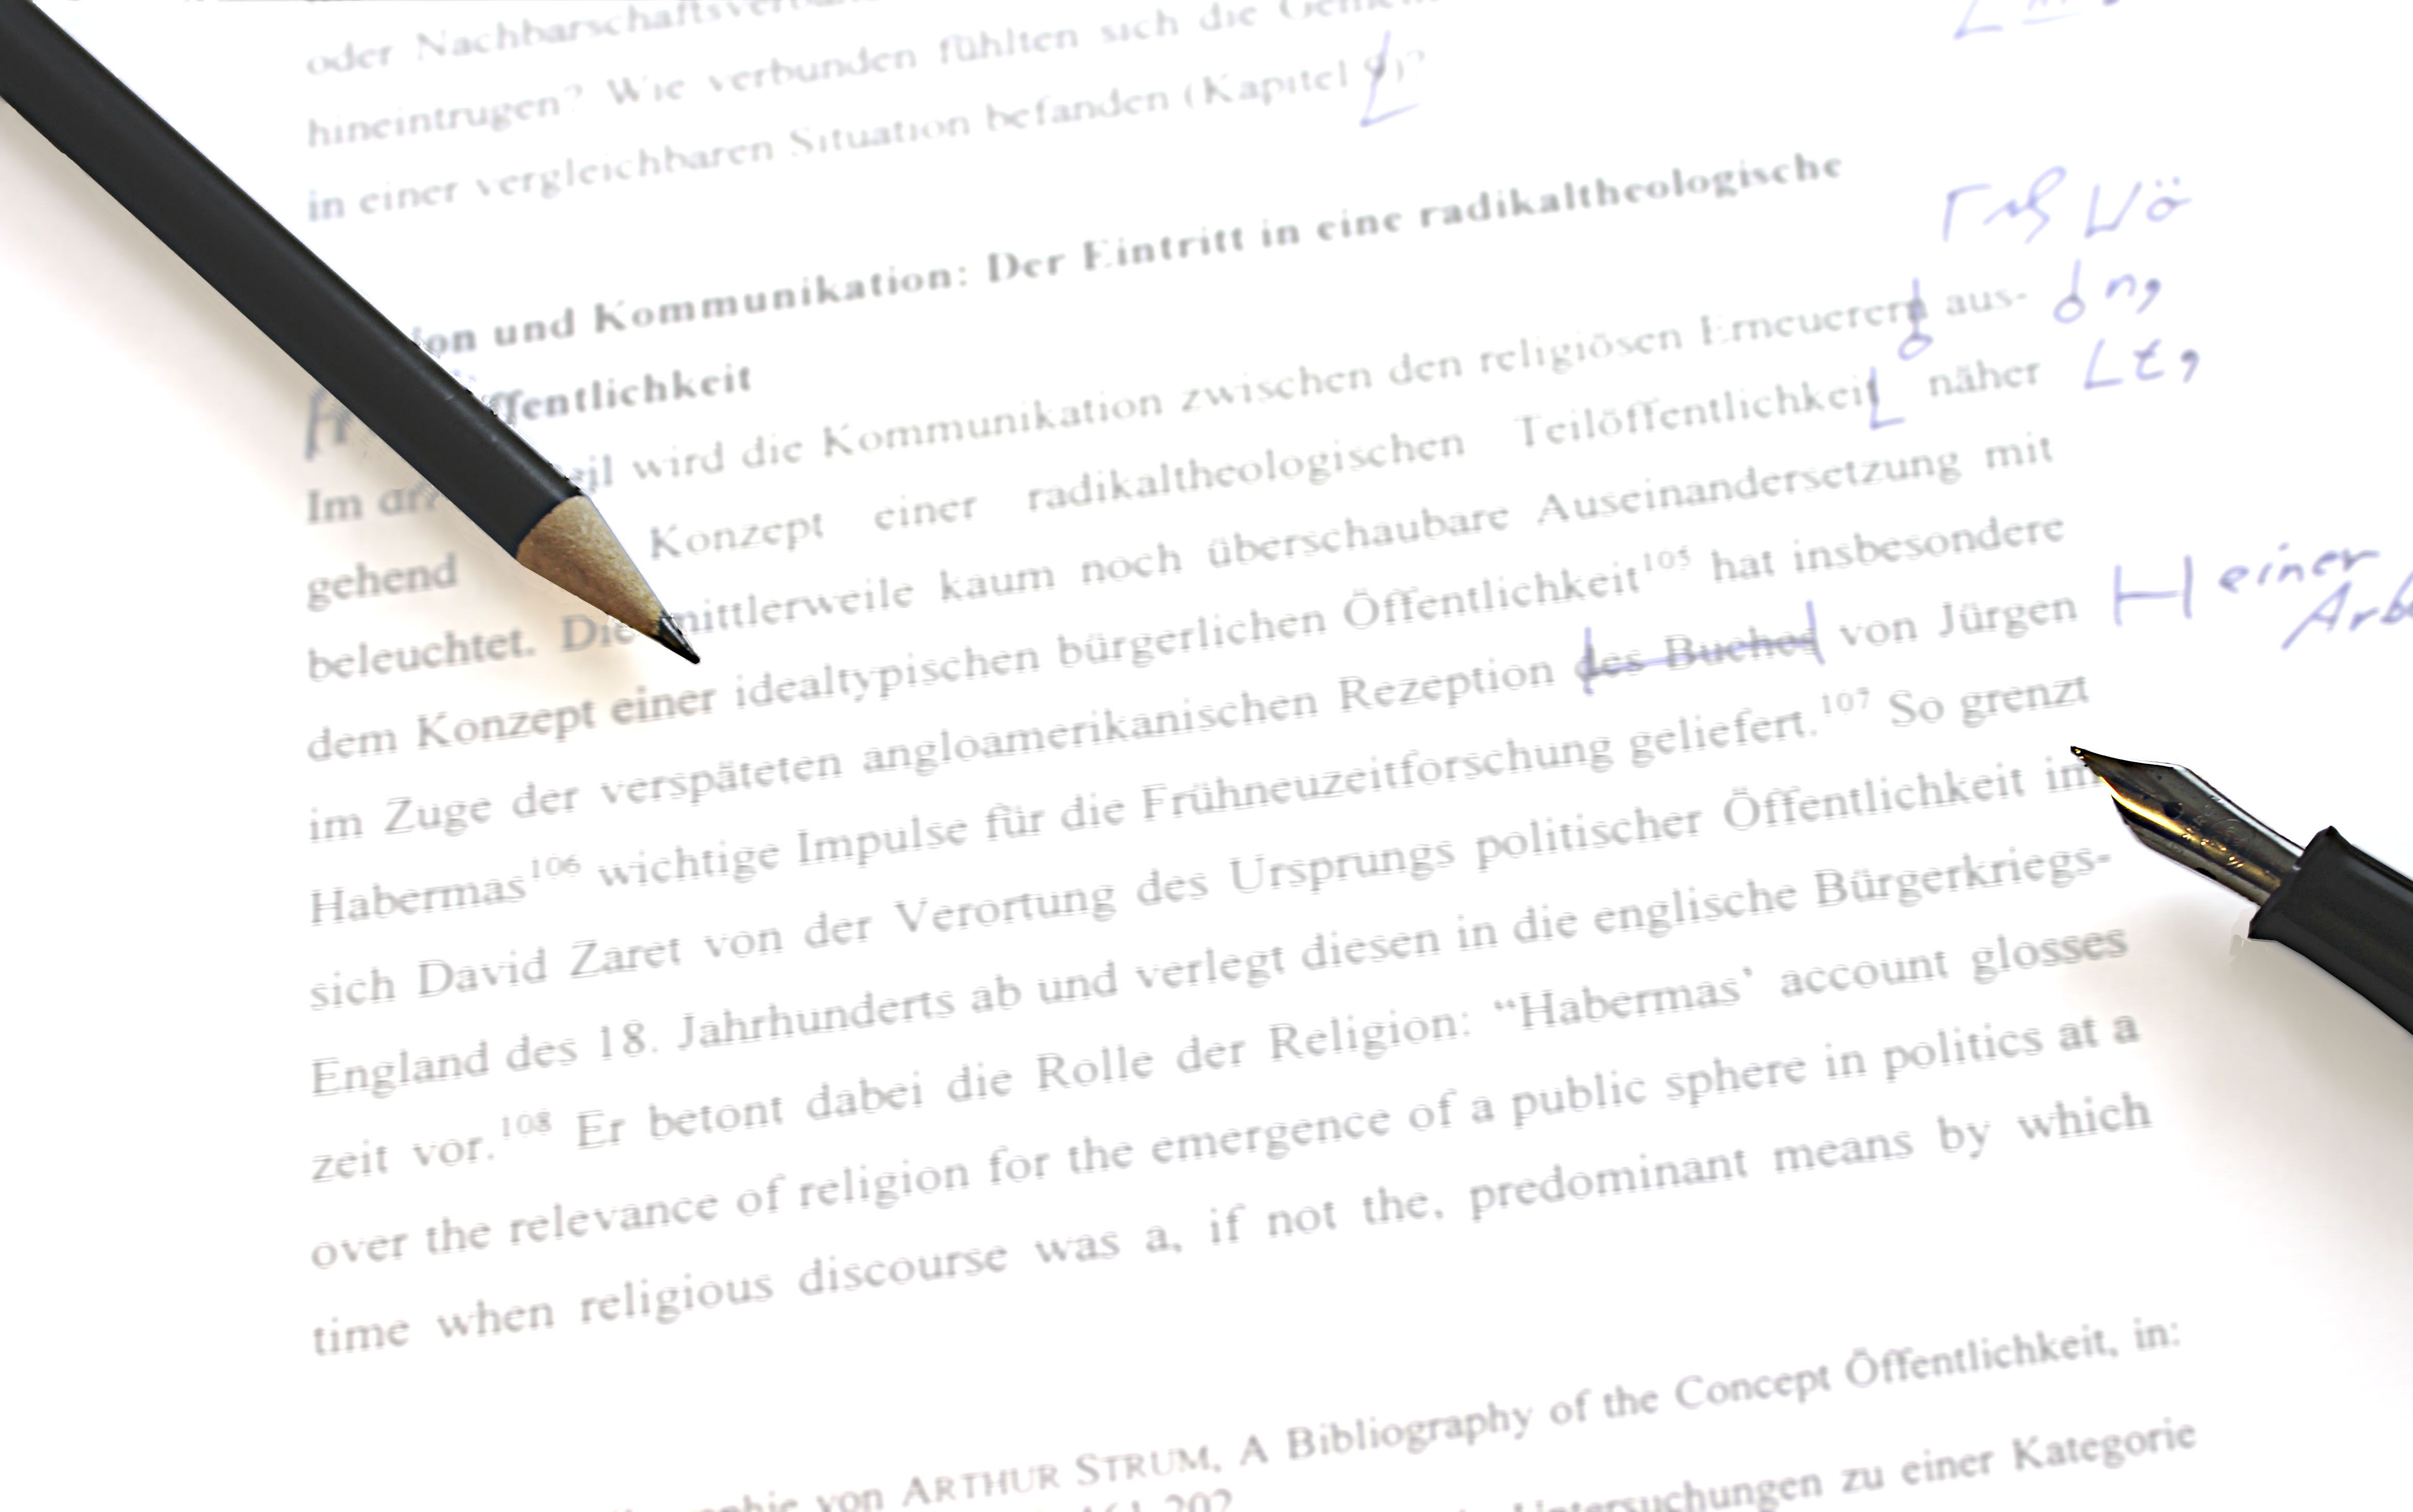 oder
hineintrugen? Wie verbunden fühlten sich die
in einer vergleichbaren Situation befanden (Kapitel 9)?
und Kommunikation: Der Eintritt in eine radikaltheologische
ffentlichkeit
Im wird die Kommunikation zwischen den religiösen Erneuerern aus-
gehend Konzept einer radikaltheologischen Teilöffentlichkeit näher
beleuchtet. Die mittlerweile kaum noch überschaubare Auseinandersetzung mit
dem Konzept einer idealtypischen bürgerlichen Öffentlichkeit105 hat insbesondere
im Zuge der verspäteten angloamerikanischen Rezeption des Buches von Jürgen
Habermas106 wichtige Impulse für die Frühneuzeitforschung geliefert.107 So grenzt
sich David Zaret von der Verortung des Ursprungs politischer Öffentlichkeit im
England des 18. Jahrhunderts ab und verlegt diesen in die englische Bürgerkriegs-
zeit vor.108 Er betont dabei die Rolle der Religion: “Habermas’ account glosses
over the relevance of religion for the emergence of a public sphere in politics at a
time when religious discourse was a, if not the, predominant means by which
von ARTHUR STRUM, A Bibliography of the Concept Öffentlichkeit, in:
zu einer Kategorie
n,
t,
einer